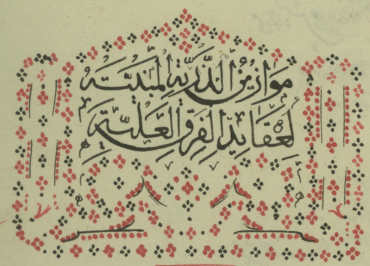 موازين الذرية المبينة
لعقائد الفرق العلية